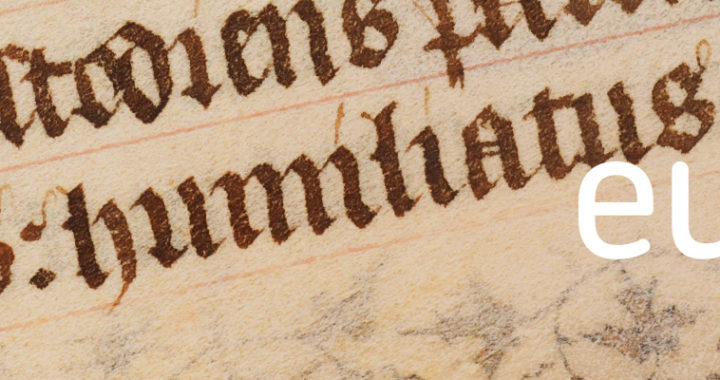 stodiens
: humiliatus
eu